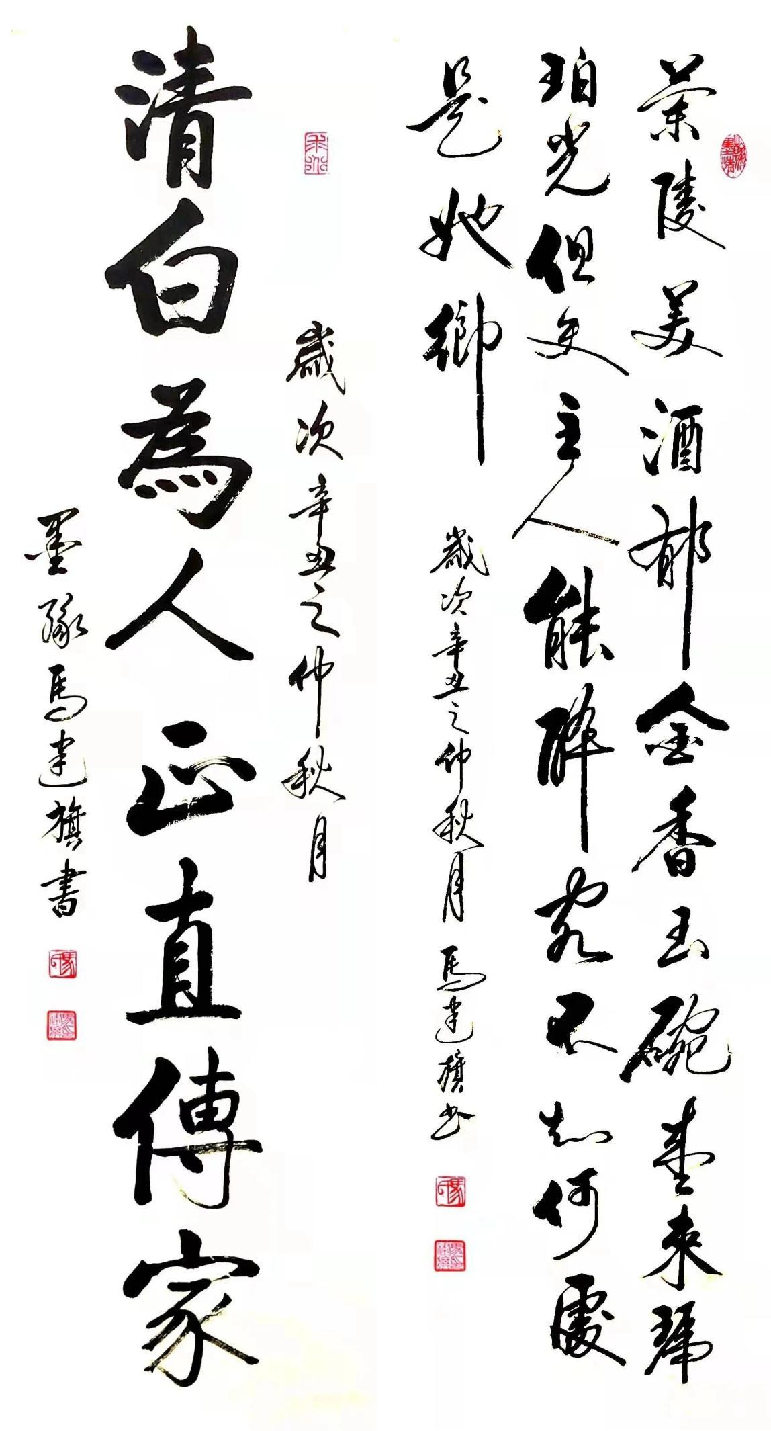 蘭陵美酒郁金香玉碗盛来琥
珀光但使主人能醉客不知何處
是她鄉
歲次辛丑之仲秋月馬建旗书
歲次辛丑之仲秋月
清白為人正直傳家
墨缘馬建旗書